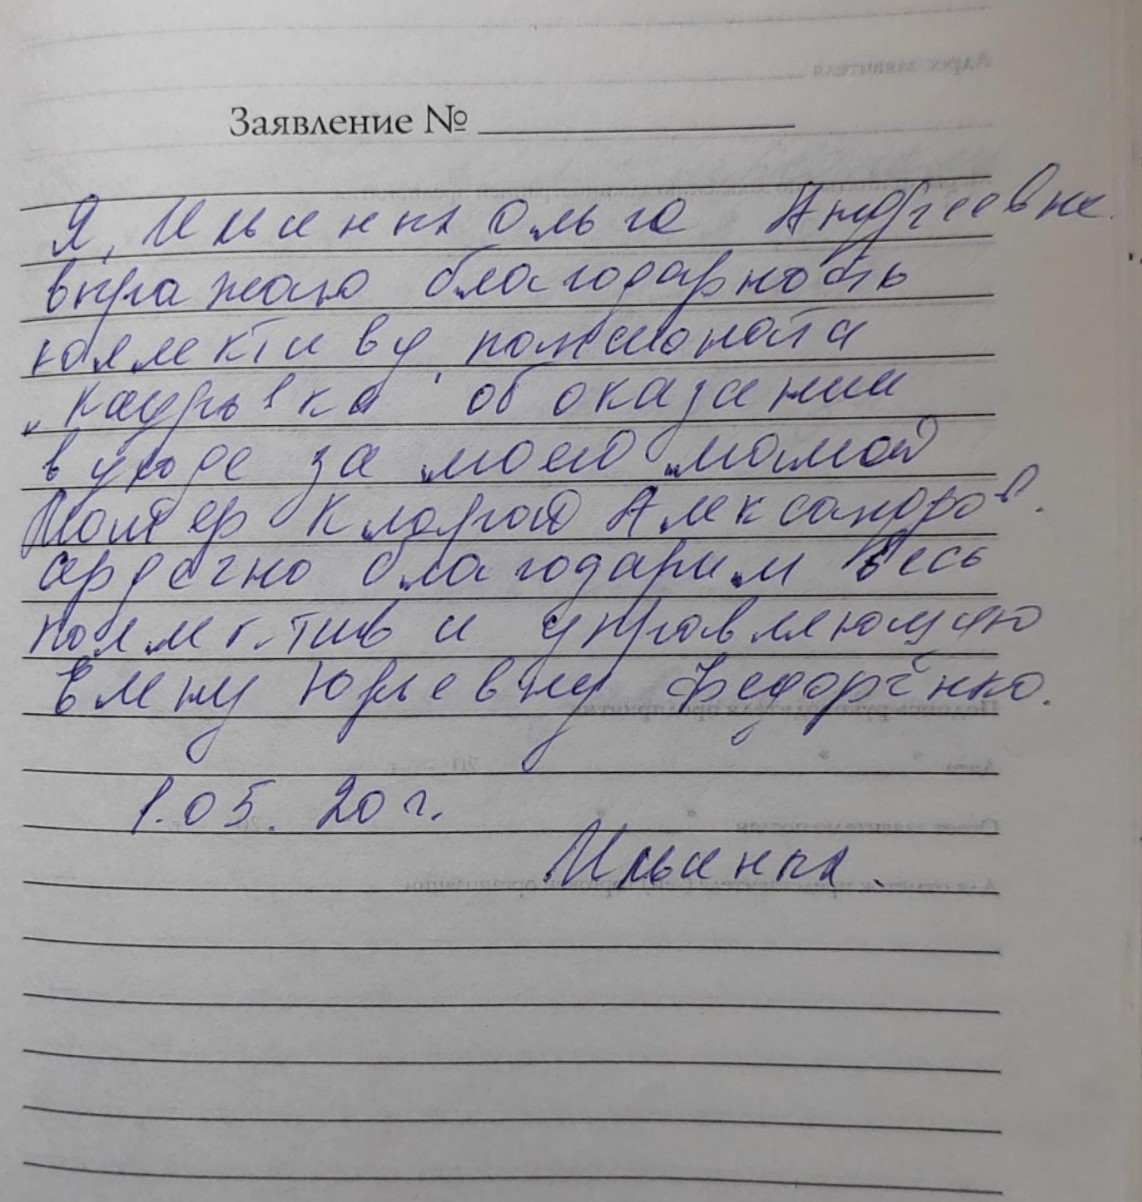 Заявление №
Я, Ильенка Ольга Андреевна
выражаю благодарность
коллективу пансионата
"Каудровка" об оказании
в уходе за моею мамой
Молтер Кларой Александров.
сердечно благодарим весь
коллектив и управляющую
Елену Юрьевну Федорченко.
1.05.20 г.
Ильенка.